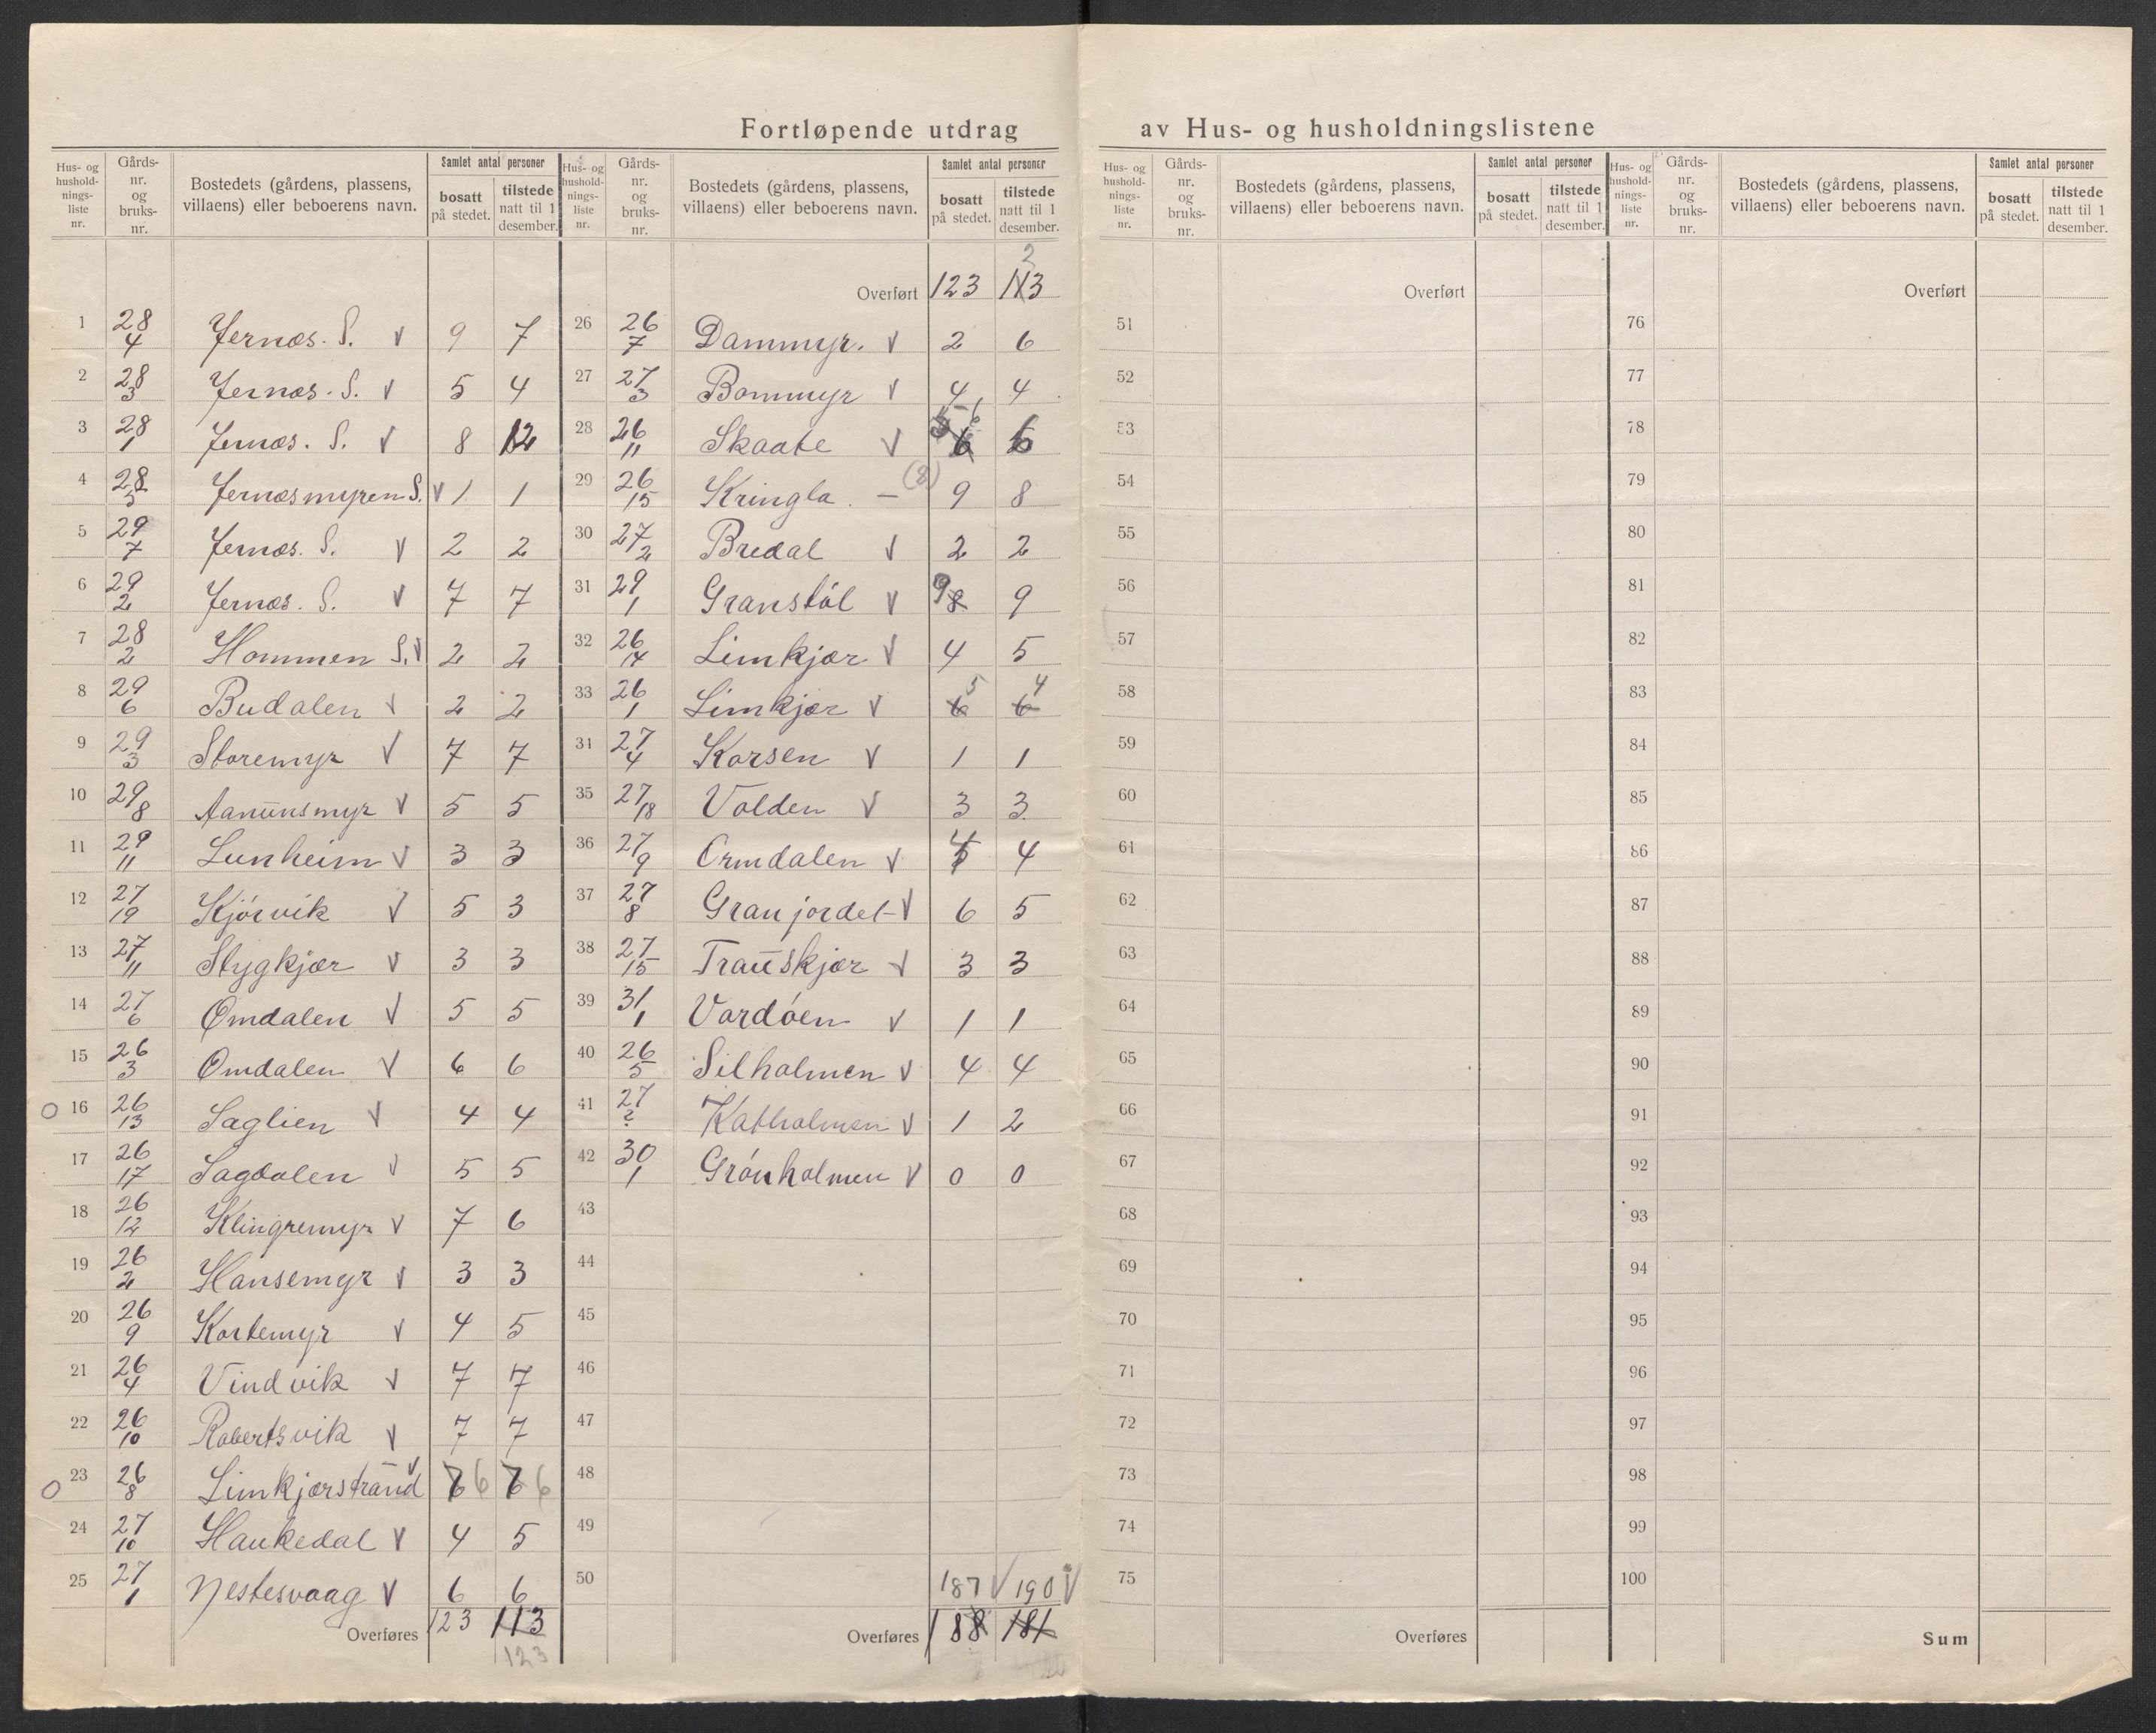 Fortløpende utdrag av Hus- og husholdningslistene
Hus- og husholdningsliste nr. | Gårdsnr. og bruksnr. | Bostedets (gårdens, plassens, villaens) eller beboerens navn. | Samlet antal personer | bosatt på stedet. | tilstede natt til 1 desember.
Hus- og husholdningsliste nr. | Gårdsnr. og bruksnr. | Bostedets (gårdens, plassens, villaens) eller beboerens navn. | Samlet antal personer | bosatt på stedet. | tilstede natt til 1 desember.
1 28/4 Jernæs. S. v 9 7
2 28/3 Jernæs. S. v 5 4
3 28/1 Jernæs. S. v 8 12
4 28/5 Jernæsmyren S. v 1 1
5 29/7 Jernæs. S. v 2 2
6 29/2 Jernæs. S. v 7 7
7 28/2 Hommen S. v 2 2
8 29/6 Budalen v 2 2
9 29/3 Storemyr v 7 7
10 29/8 Aanunsmyr v 5 5
11 29/11 Lunheim v 3 3
12 27/19 Kjörvik v 5 3
13 27/11 Stygkjær v 3 3
14 27/6 Omdalen v 5 5
15 26/3 Omdalen v 6 6
16 26/13 Saglien v 4 4
17 26/17 Sagdalen v 5 5
18 26/12 Klingremyr v 7 6
19 26/2 Hansemyr v 3 3
20 26/9 Kortemyr v 4 5
21 26/4 Vindvik v 7 7
22 26/10 Robertsvik v 7 7
23 26/8 Limkjærstrand v 6 6
24 27/10 Haukedal v 4 5
25 27/1 Nestesvaag v 6 6
Overføres 123 113
123
Overført 123 113
26 26/7 Dammyr. v 2 6
27 27/3 Bommyr v 4 4
28 26/11 Skaate v 6 6
29 26/15 Kringla. — (2) 9 8
30 27/2 Bredal v 2 2
31 29/1 Granstöl v 9 8 9
32 26/14 Limkjær v 4 5
33 26/1 Limkjær v 6 5 6 4
31 27/4 Korsen v 1 1
35 27/18 Volden v 3 3
36 27/9 Ormdalen v 4 4
37 27/8 Granjordet v 6 5
38 27/15 Trauskjær v 3 3
39 31/1 Vardöen v 1 1
40 26/5 Silholmen v 4 4
41 27/? Katholmen v 1 2
42 30/1 Grönholmen v 0 0
43
44
45
46
47
48
49
50 187 v 190 v
Overføres 188 181
Hus- og husholdningsliste nr. | Gårdsnr. og bruksnr. | Bostedets (gårdens, plassens, villaens) eller beboerens navn. | Samlet antal personer | bosatt på stedet. | tilstede natt til 1 desember.
Hus- og husholdningsliste nr. | Gårdsnr. og bruksnr. | Bostedets (gårdens, plassens, villaens) eller beboerens navn. | Samlet antal personer | bosatt på stedet. | tilstede natt til 1 desember.
Overført
51
52
53
54
55
56
57
58
59
60
61
62
63
64
65
66
67
68
69
70
71
72
73
74
75
Overføres
Overført
76
77
78
79
80
81
82
83
84
85
86
87
88
89
90
91
92
93
94
95
96
97
98
99
100
Sum